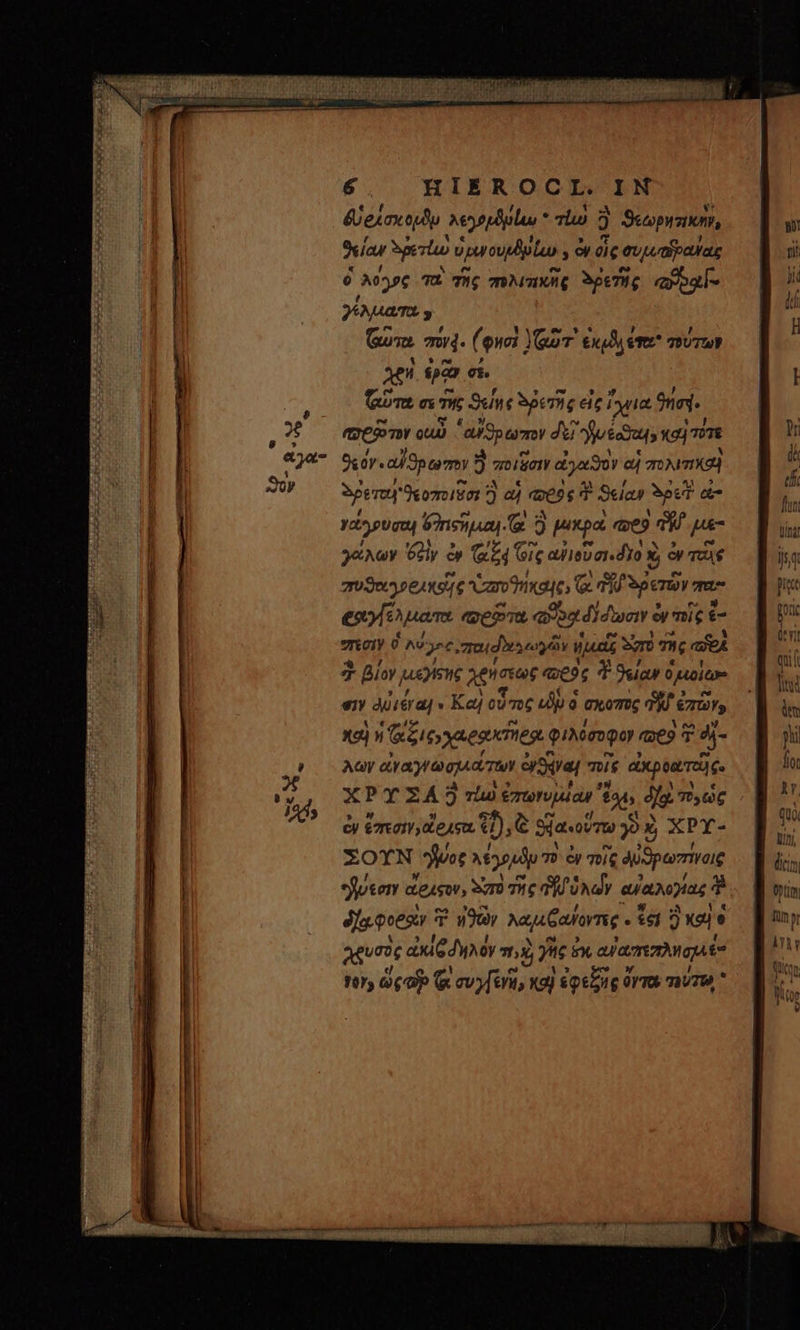 6. HIEROCL. IN
εὑρισκομένην λεγομένην· τὴν δὲ θεωρητικήν,
θείαν ἀρετὴν ὑμνουμένην, ἐν οἷς συμπεράνας
ὁ λόγος τὰ τῆς πολιτικῆς ἀρετῆς παραγ-
γέλματα,
ταῦτα πόνει (φησὶ) ταῦτ' ἐκμελέτα· τούτων
χρὴ ἐρᾶν σε.
ταῦτά σε τῆς θείης ἀρετῆς εἰς ἴχνια θήσει.
πρῶτον οὖν ἄνθρωπον δεῖ γενέσθαι, καὶ τότε
θεόν. ἄνθρωπον δὲ ποιοῦσιν ἀγαθὸν αἱ πολιτικαὶ
ἀρεταί· θεοποιοῦσι δὲ αἱ πρὸς τὴν θείαν ἀρετὴν ἀ-
νάγουσαι ἐπιστῆμαι. τὰ δὲ μικρὰ πρὸ τῶν με-
γάλων ἐστὶν ἐν τάξει τοῖς ἀνιοῦσι. διὸ καὶ ἐν ταῖς
πυθαγορικαῖς ὑποθήκαις, τὰ τῶν ἀρετῶν πα-
ραγγέλματα πρῶτα παραδίδωσιν ἐν τοῖς ἔ-
πεσιν ὁ λόγος, παιδαγωγῶν ἡμᾶς ἀπὸ τῆς περὶ
τὸν βίον μεγίστης χρήσεως πρὸς τὴν θείαν ὁμοίω-
σιν ἀνιέναι. Καὶ οὗτος μὲν ὁ σκοπὸς τῶν ἐπῶν,
καὶ ἡ τάξις, χαρακτῆρα φιλόσοφον πρὸ τῶν ἄλ-
λων ἀναγνωσμάτων ἐνθεῖναι τοῖς ἀκροαταῖς.
ΧΡΥΣΑ δὲ τὴν ἐπωνυμίαν ἔχει, διὰ τὸ, ὡς
ἐν ἔπεσιν, ἄριστα εἶναι, καὶ θεῖα. οὕτω γὰρ καὶ ΧΡΥ-
ΣΟΥΝ γένος λέγομεν τὸ ἐν τοῖς ἀνθρωπίνοις
γένεσιν ἄριστον, ἀπὸ τῆς τῶν ὑλῶν ἀναλογίας τὴν
διαφορὰν τῶν ἠθῶν λαμβάνοντες. ἔστι δὲ καὶ ὁ
χρυσὸς ἀκίβδηλόν τι, καὶ γῆς οὐκ ἀναπεπλησμέ-
νον, ὥσπερ τὰ συγγενῆ, καὶ ἐφεξῆς ὄντα τούτῳ,
ἀγα-
θὸν